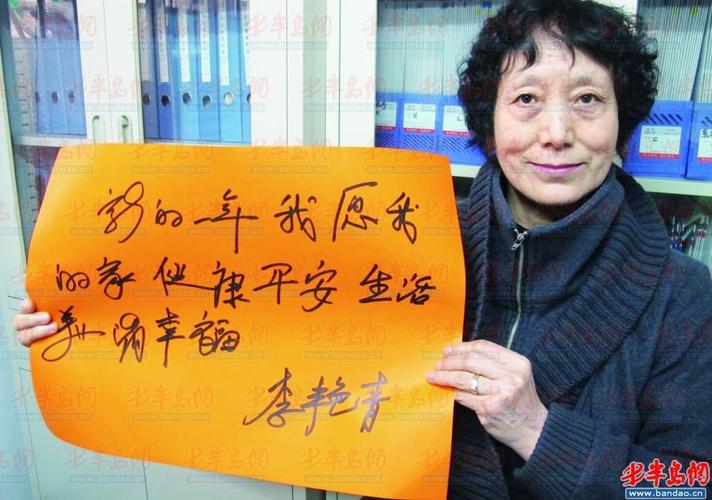 新的一年我愿我
的家健康平安生活
美满幸福
李艳青
半岛网
www.bandao.cn